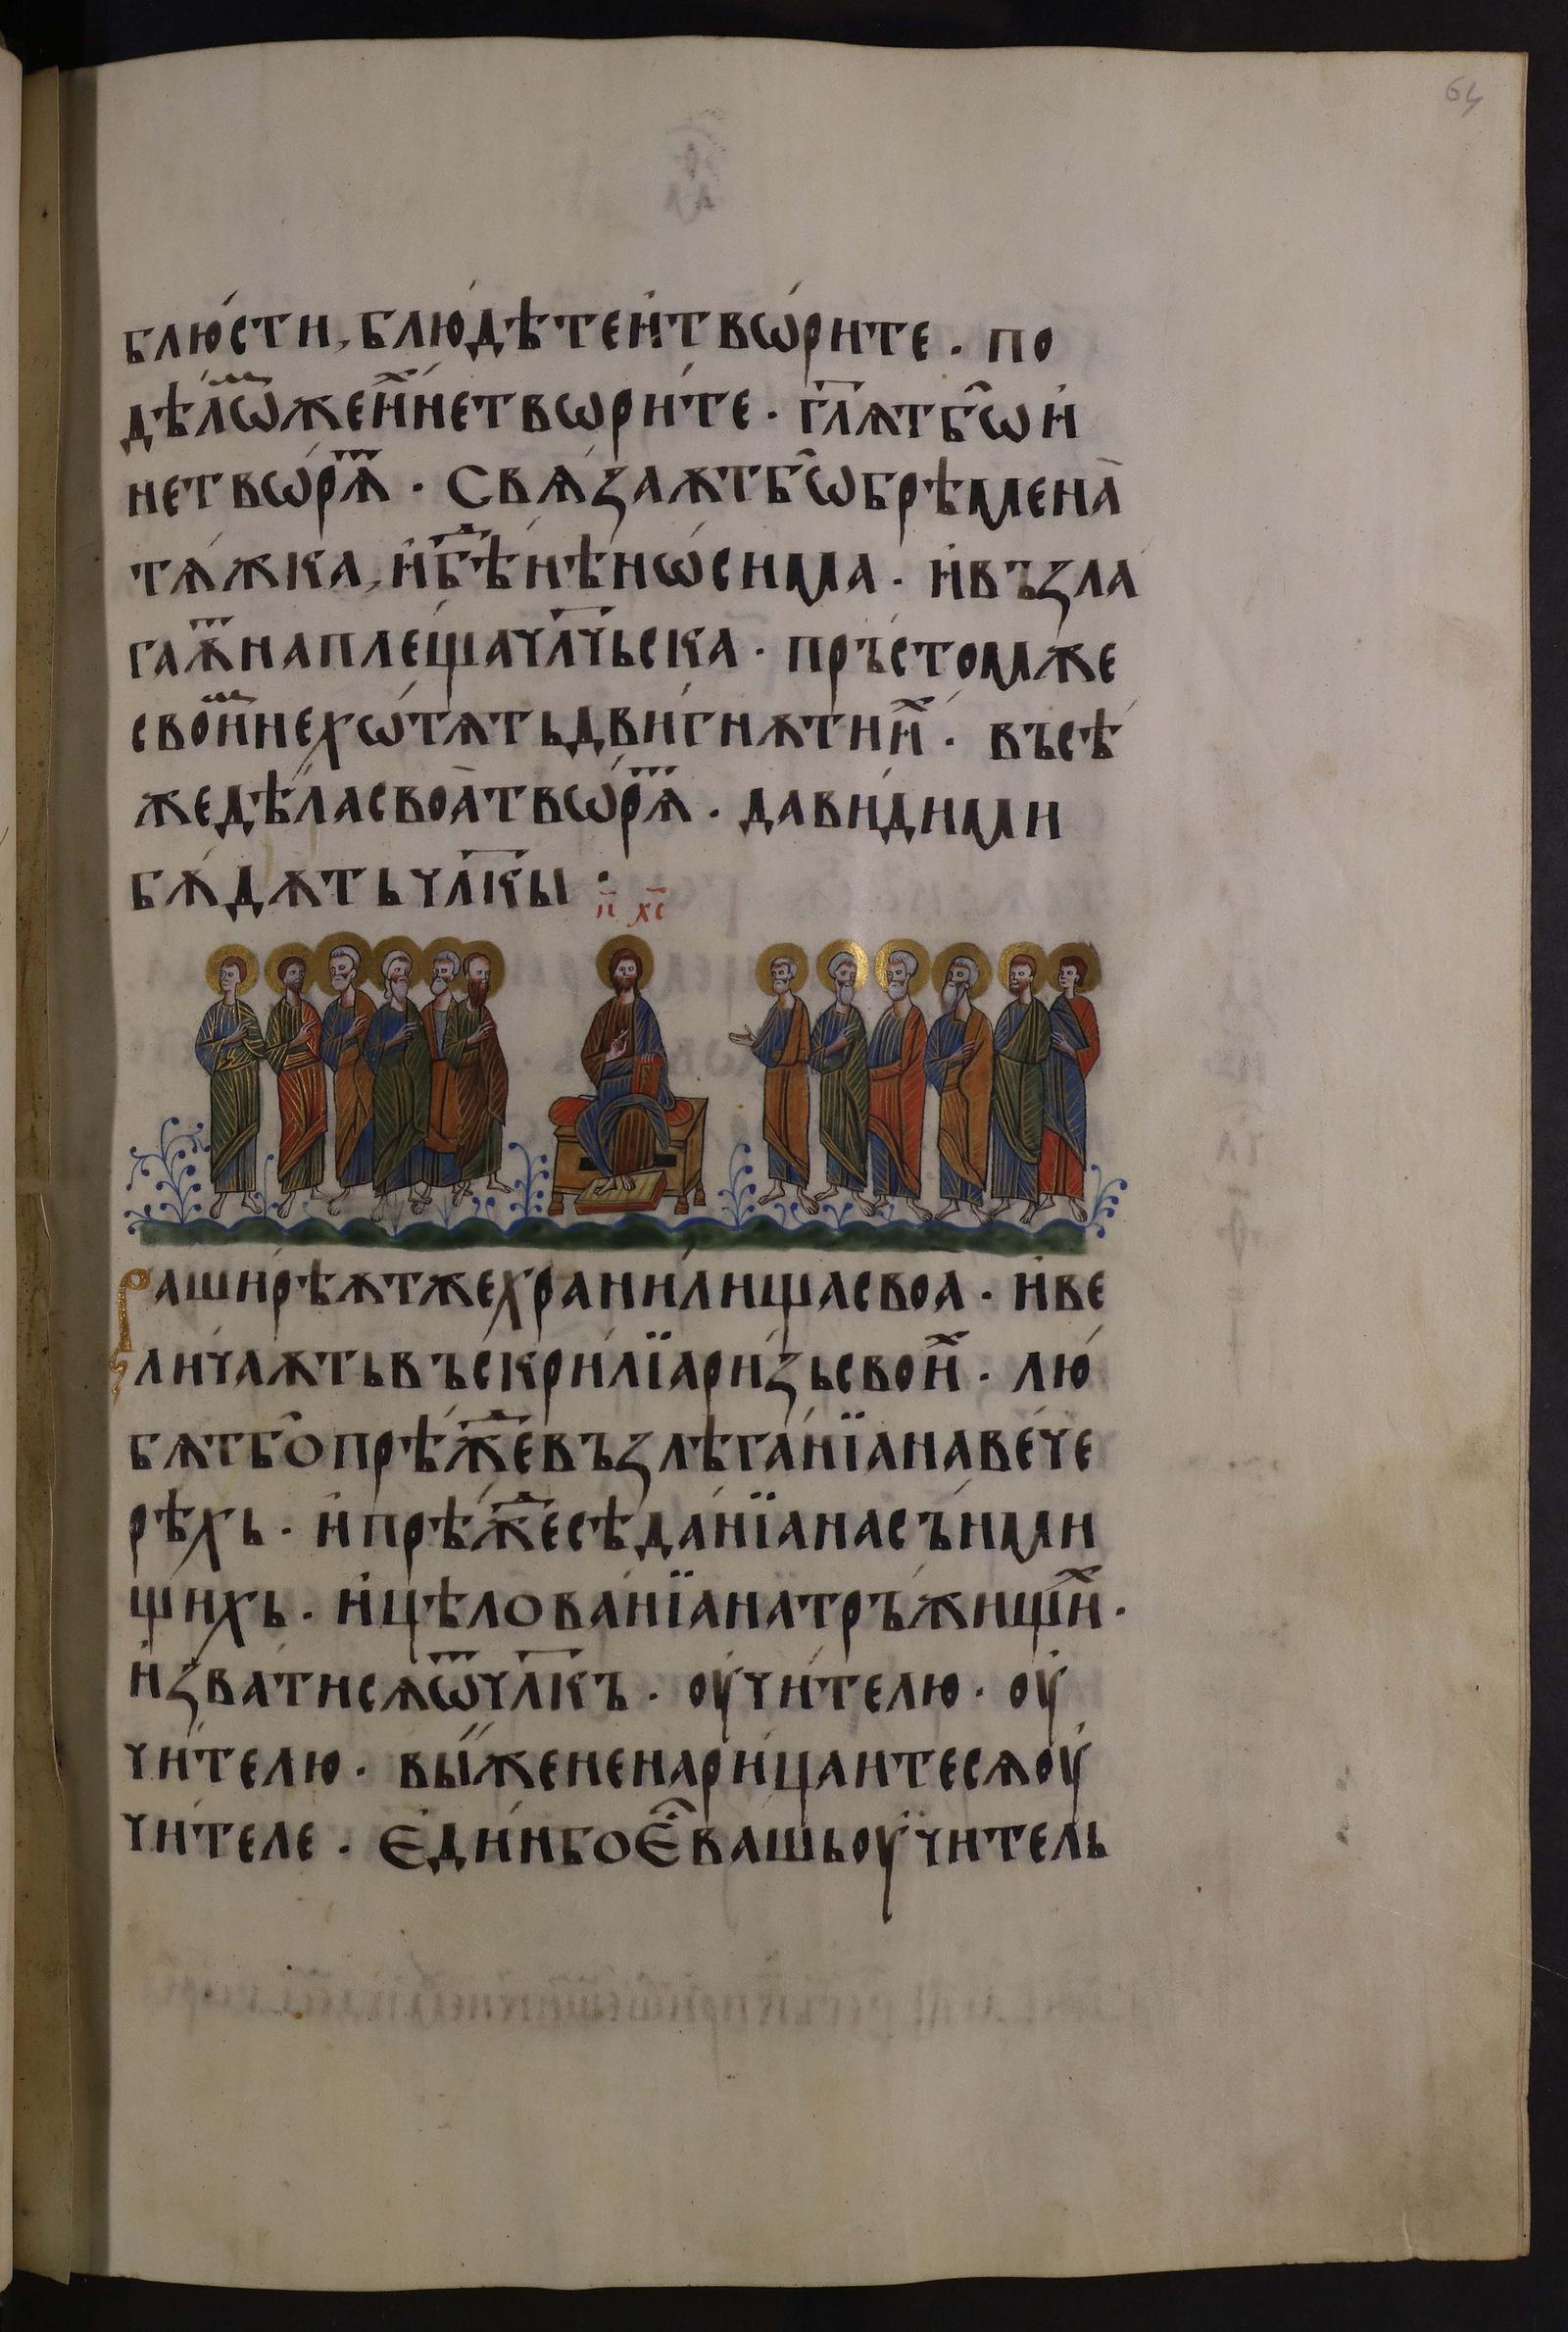 64
блю́сти, блюдѣ́те и҆ твѡ́рите . по
дѣлѡⷨ же еи҆ⷯ не творите . г҃лѫт бѡ҆ и҆
не твѡ́рѧⷮ . Свѧ́зꙗѫт бѡ҆ брѣмена
тѧ́жка, и҆ бѣⷣнѣ нѡ́сима . и҆ възла
гаѫⷮ на плеща чл҃чьска . пръстом же
свои҆ⷨ не хѡ́тѧть двигнѫти иⷯ . въсѣ
же дѣ́ла своа҆ твѡ́рѧⷮ . да ви́дими
бѫ́дѫть чл҃кы :
і҃с х҃с
Раширѣѫт же хранилища своа . и҆ ве
личаѫть въскри́лїа ри́зь свои҆ⷯ . лю́
бѧт бо҆ прѣ́жⷣе възлѣга́нїа на ве́че
рѣхь . и҆ прѣ́жⷣе сѣда́нїа на съ́нми
щихь . и҆ цѣлова́нїа на тръ́жищиⷯ .
и҆ зва́ти сѧ ѿ чл҃къ . оу҆чи́телю . оу҆
чи́телю . вы́ же не нарица́ите сѧ оу҆
чи́теле . Є҆ди́н бо є҆ⷭ вашь оу҆чи́тель